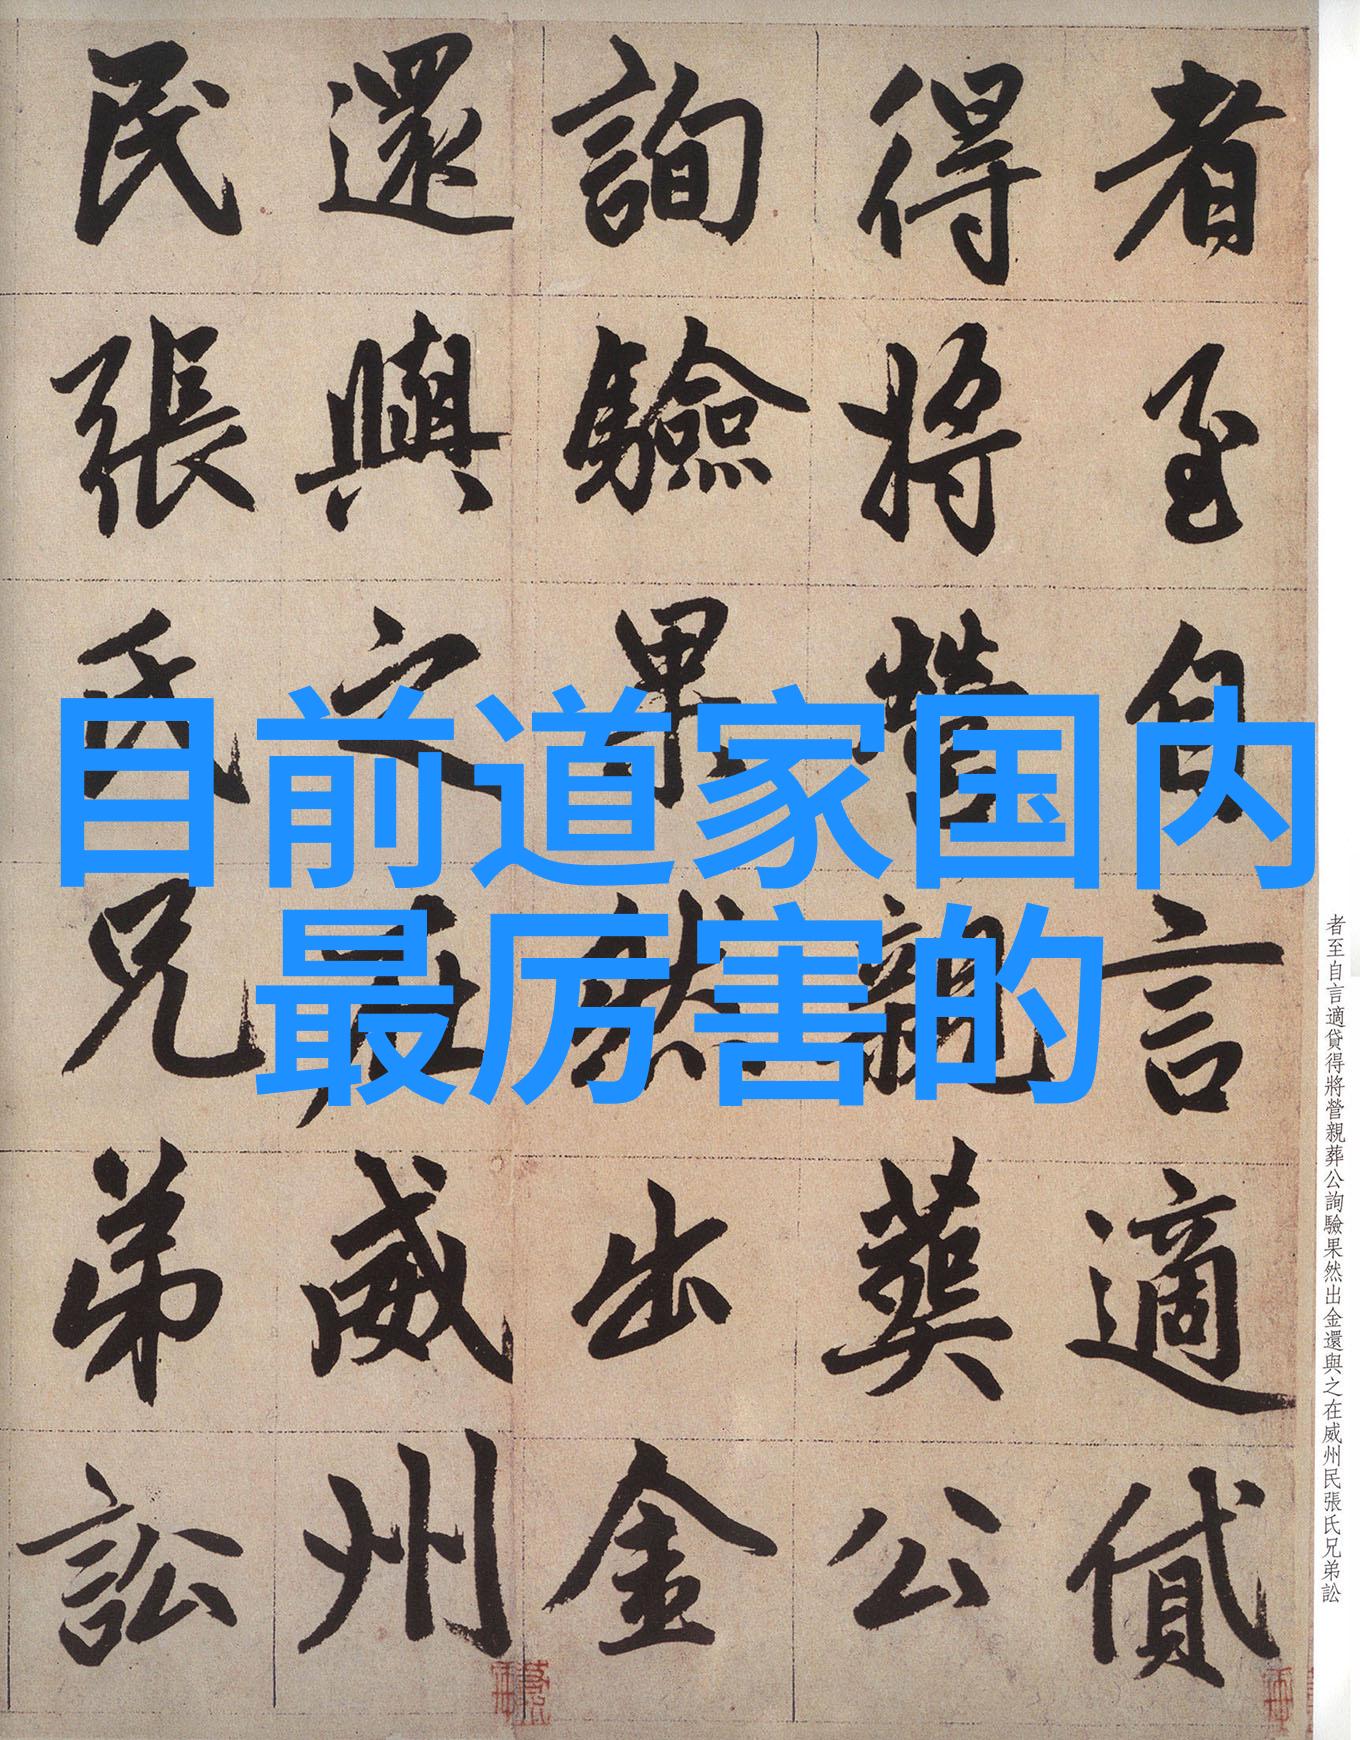 目前道家国内
最厉害的
者至自言適貸
得將營親葬公
詢驗果然出金
還與之在威州
民張氏兄弟訟
者至自言適貸得將營親葬公詢驗果然出金還與之在威州民張氏兄弟訟